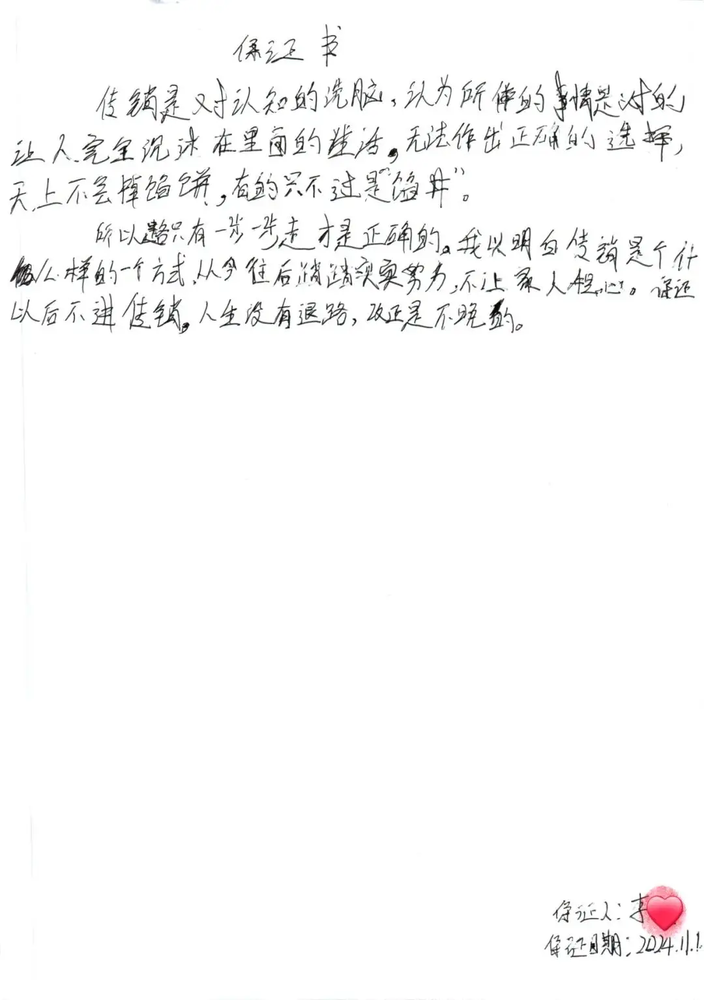 保证书
传销是对认知的洗脑，认为所作的事情是对的
让人完全沉迷在里面的生活。无法作出正确的选择，
天上不会掉馅饼，有的只不过是“陷井”。
所以路只有一步一步走才是正确的。我以明白传销是个什
么样的一个方式，从今往后踏踏实实努力，不让家人担心。保证
以后不进传销。人生没有退路，改正是不晚的。
保证人：李
保证日期：2024.11.1